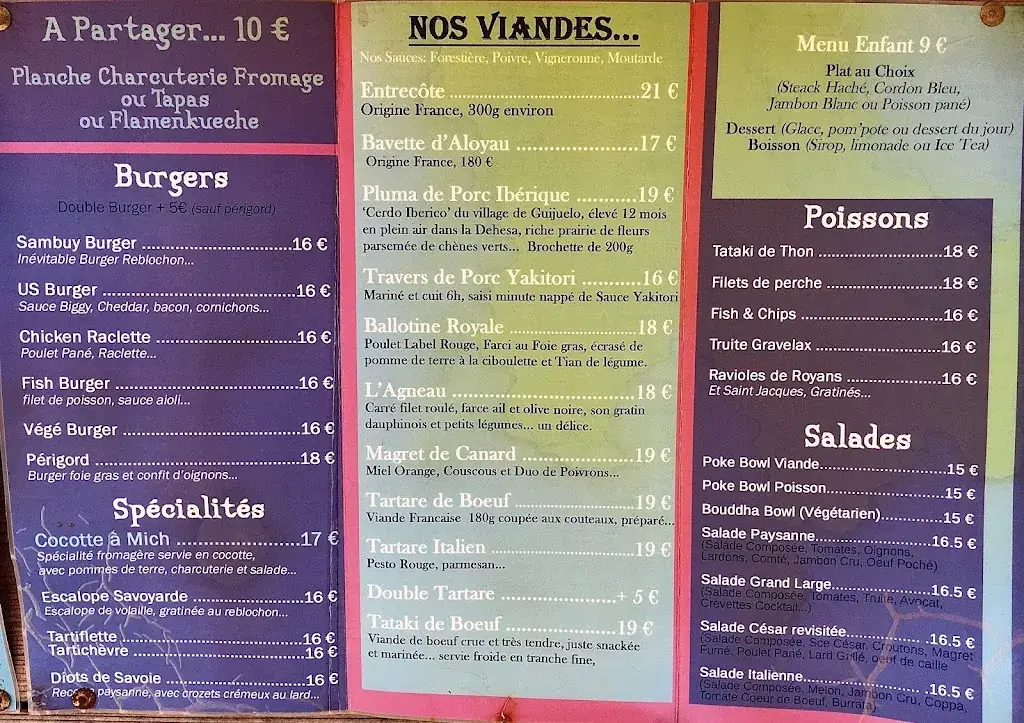 A Partager... 10 €
Planche Charcuterie Fromage
ou Tapas
ou Flamenkueche
Burgers
Double Burger + 5€ (sauf périgord)
Sambuy Burger ............................16 €
Inévitable Burger Reblochon...
US Burger ....................................16 €
Sauce Biggy, Cheddar, bacon, cornichons...
Chicken Raclette ...........................16 €
Poulet Pané, Raclette...
Fish Burger ...................................16 €
filet de poisson, sauce aioli...
Végé Burger .................................16 €
Périgord .......................................18 €
Burger foie gras et confit d'oignons...
Spécialités
Cocotte à Mich .......................17 €
Spécialité fromagère servie en cocotte,
avec pommes de terre, charcuterie et salade...
Escalope Savoyarde ......................16 €
Escalope de volaille, gratinée au reblochon...
Tartiflette ....................................16 €
Tartichèvre ..................................16 €
Diots de Savoie .............................16 €
paysanne, avec crozets crémeux au lard...
NOS VIANDES...
Nos Sauces: Forestière, Poivre, Vigneronne, Moutarde
Entrecôte .......................................21 €
Origine France, 300g environ
Bavette d'Aloyau .........................17 €
Origine France, 180 €
Pluma de Porc Ibérique .............19 €
'Cerdo Iberico' du village de Guijuelo, élevé 12 mois
en plein air dans la Dehesa, riche prairie de fleurs
parsemée de chènes verts... Brochette de 200g
Travers de Porc Yakitori ............16 €
Mariné et cuit 6h, saisi minute nappé de Sauce Yakitori
Ballotine Royale ..........................18 €
Poulet Label Rouge, Farci au Foie gras, écrasé de
pomme de terre à la ciboulette et Tian de légume.
L'Agneau ......................................18 €
Carré filet roulé, farce ail et olive noire, son gratin
dauphinois et petits légumes... un délice.
Magret de Canard .......................19 €
Miel Orange, Couscous et Duo de Poivrons...
Tartare de Boeuf .........................19 €
Viande Francaise 180g coupée aux couteaux, préparé...
Tartare Italien .............................19 €
Pesto Rouge, parmesan...
Double Tartare .........................+ 5 €
Tataki de Boeuf .......................19 €
Viande de boeuf crue et très tendre, juste snackée
et marinée... servie froide en tranche fine,
Menu Enfant 9 €
Plat au Choix
(Steack Haché, Cordon Bleu,
Jambon Blanc ou Poisson pané)
Dessert (Glace, pom'pote ou dessert du jour)
Boisson (Sirop, limonade ou Ice Tea)
Poissons
Tataki de Thon ..........................18 €
Filets de perche ........................18 €
Fish & Chips .............................16 €
Truite Gravelax .........................16 €
Ravioles de Royans ...................16 €
Et Saint Jacques, Gratinés...
Salades
Poke Bowl Viande..........................15 €
Poke Bowl Poisson........................15 €
Bouddha Bowl (Végétarien).............15 €
Salade Paysanne..........................16.5 €
(Salade Composée, Tomates, Oignons,
Lardons, Comté, Jambon Cru, Oeuf Poché)
Salade Grand Large......................16.5 €
(Salade Composée, Tomates, Truite, Avocat,
Crevettes Cocktail...)
Salade César revisitée...................16.5 €
(Salade Composée, Sce César, Croutons, Magret
Fumé, Poulet Pané, Lard Grillé, oeuf de caille
Salade Italienne............................16.5 €
(Salade Composée, Melon, Jambon Cru, Coppa,
Tomate Coeur de Boeuf, Burrata)